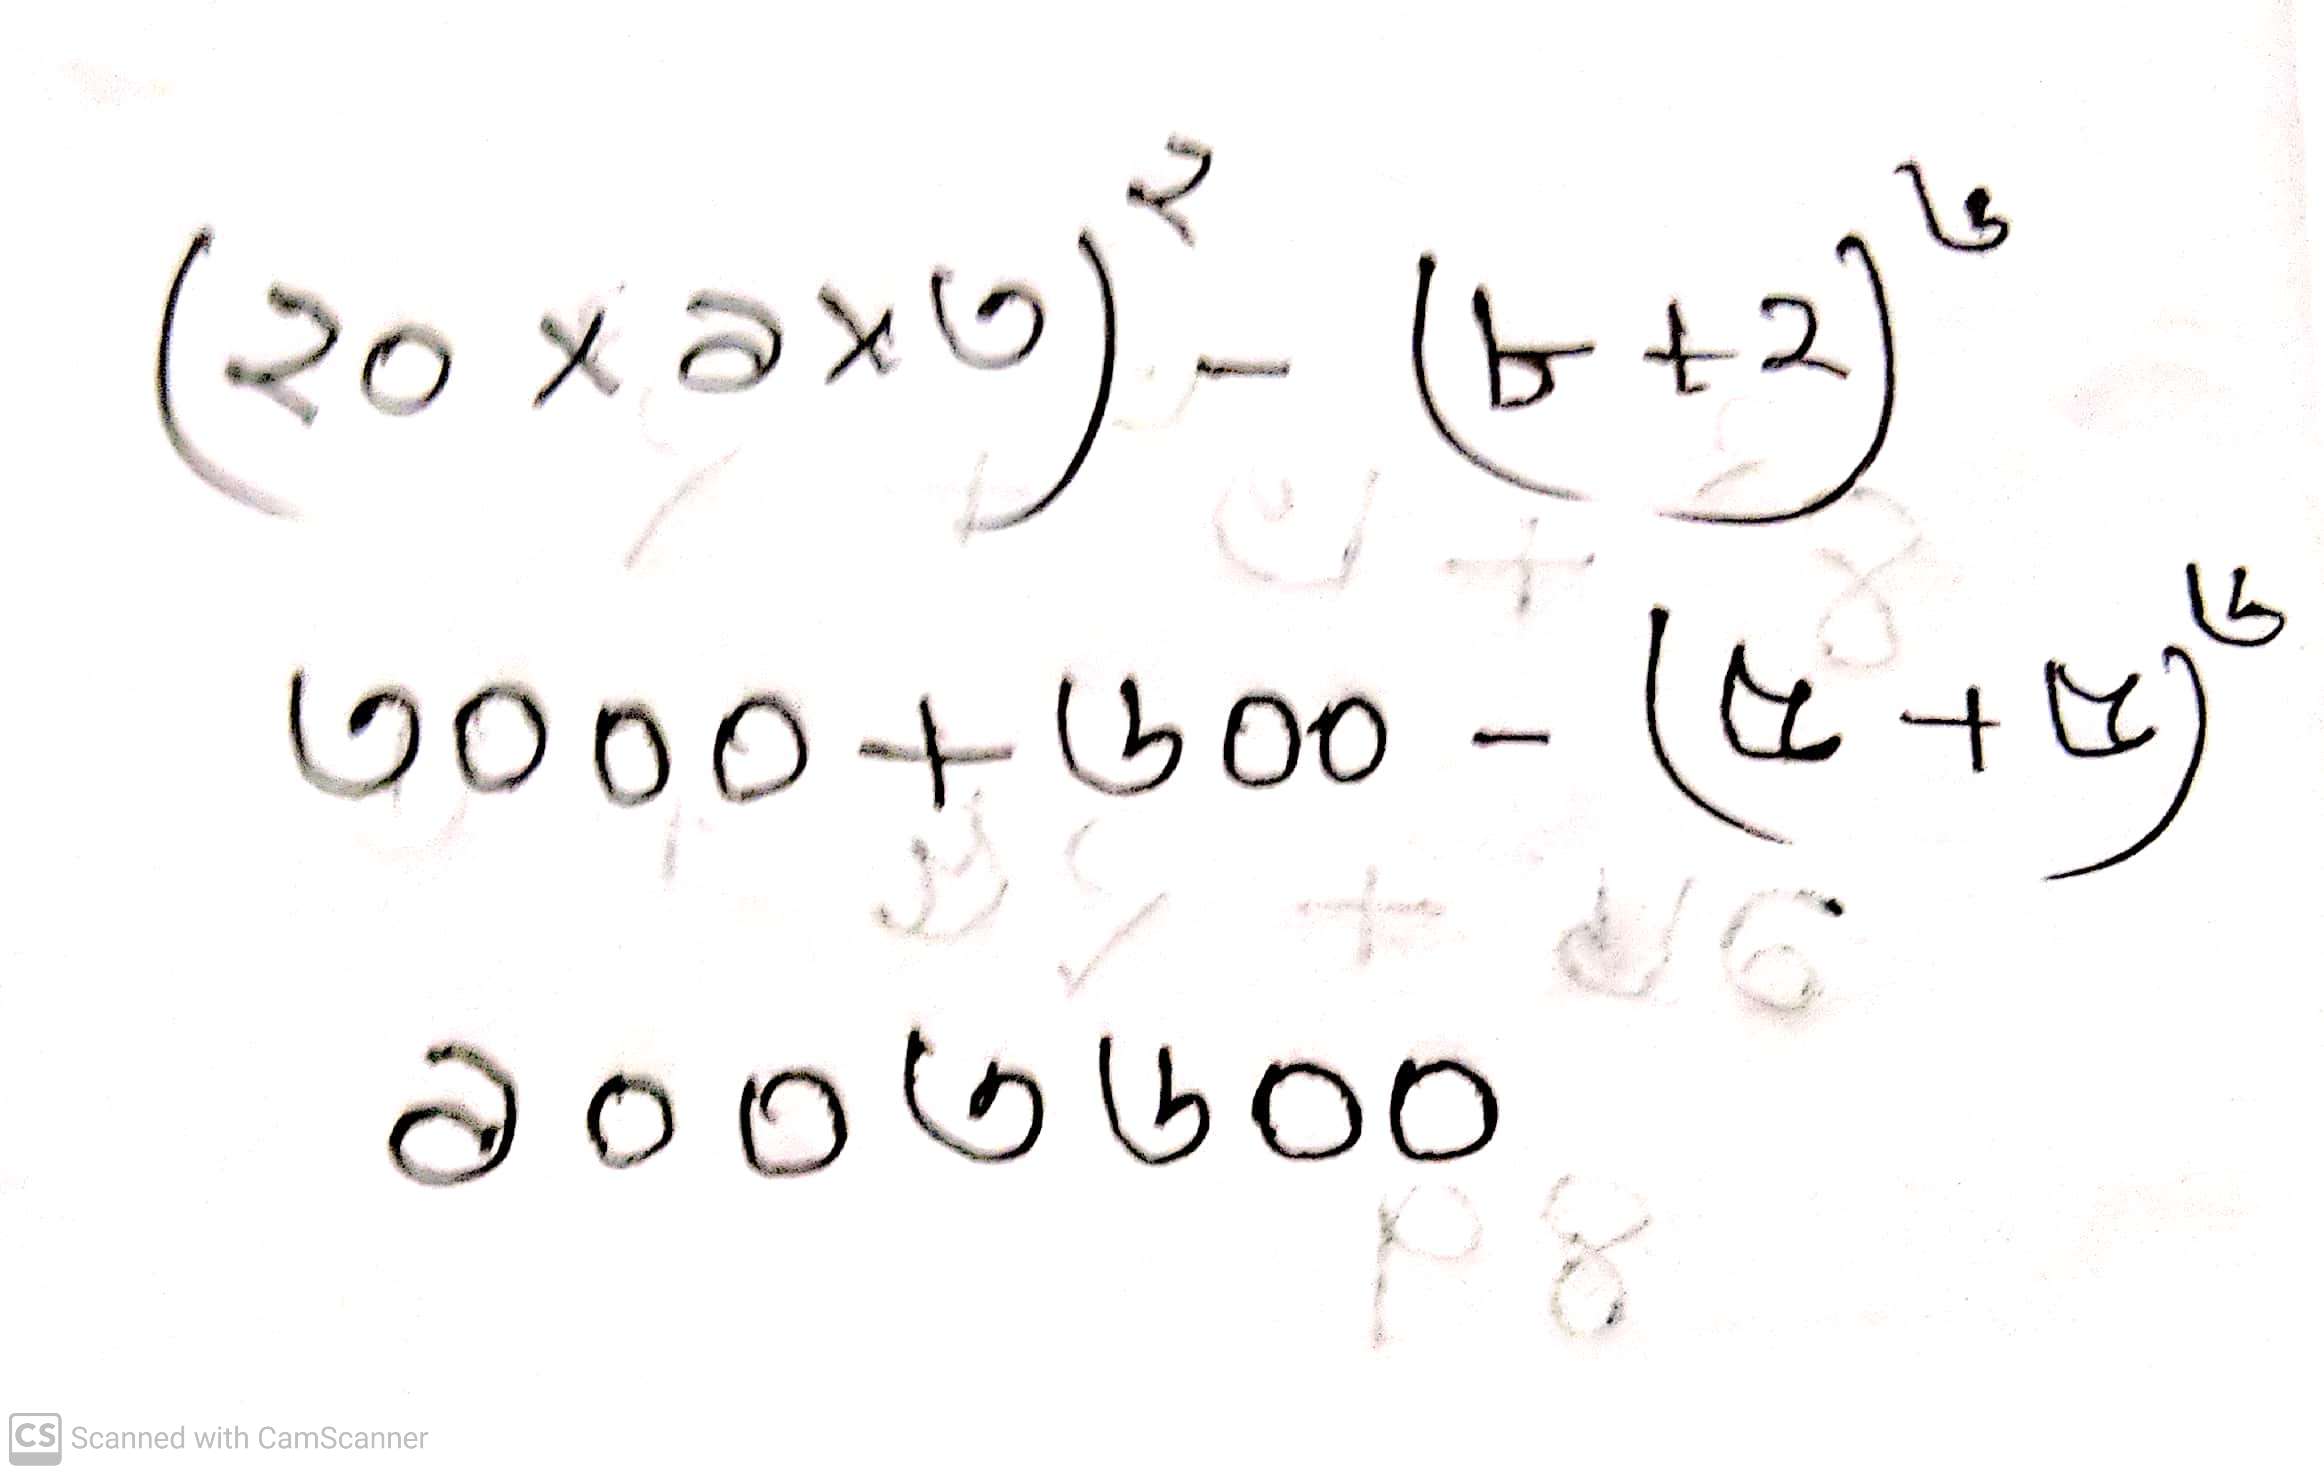 (২০ × ৯ × ৩)^২ - (৮ + ২)^৬
৩০০০ + ৬০০ - (৫ + ৫)^৬
৯০০৩৬০০
CS Scanned with CamScanner